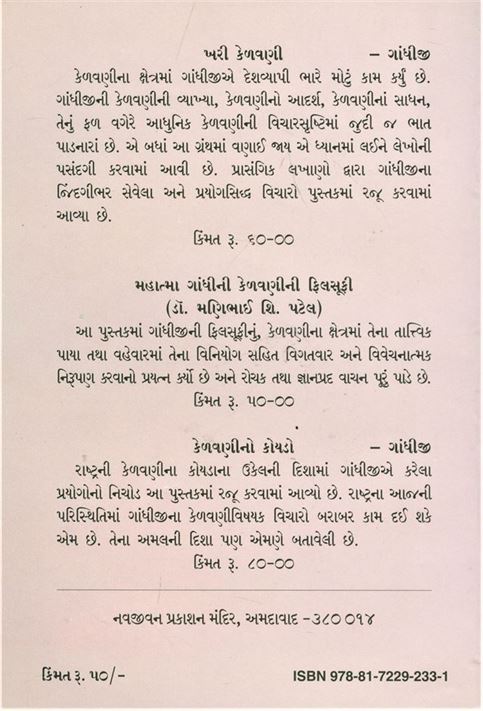 ખરી કેળવણી – ગાંધીજી
કેળવણીના ક્ષેત્રમાં ગાંધીજીએ દેશવ્યાપી ભારે મોટું કામ કર્યું છે.
ગાંધીજીની કેળવણીની વ્યાખ્યા, કેળવણીનો આદર્શ, કેળવણીનાં સાધન,
તેનું ફળ વગેરે આધુનિક કેળવણીની વિચારસૃષ્ટિમાં જુદી જ ભાત
પાડનારાં છે. એ બધાં આ ગ્રંથમાં વણાઈ જાય એ ધ્યાનમાં લઈને લેખોની
પસંદગી કરવામાં આવી છે. પ્રાસંગિક લખાણો દ્વારા ગાંધીજીના
જિંદગીભર સેવેલા અને પ્રયોગસિદ્ધ વિચારો પુસ્તકમાં રજૂ કરવામાં
આવ્યા છે.
કિંમત રૂ. ૬૦-૦૦
મહાત્મા ગાંધીની કેળવણીની ફિલસૂફી
(ડૉ. મણિભાઈ શિ. પટેલ)
આ પુસ્તકમાં ગાંધીજીની ફિલસૂફીનું, કેળવણીના ક્ષેત્રમાં તેના તાત્ત્વિક
પાયા તથા વહેવારમાં તેના વિનિયોગ સહિત વિગતવાર અને વિવેચનાત્મક
નિરૂપણ કરવાનો પ્રયત્ન કર્યો છે અને રોચક તથા જ્ઞાનપ્રદ વાચન પૂરું પાડે છે.
કિંમત રૂ. ૫૦-૦૦
કેળવણીનો કોયડો – ગાંધીજી
રાષ્ટ્રની કેળવણીના કોયડાના ઉકેલની દિશામાં ગાંધીજીએ કરેલા
પ્રયોગોનો નિચોડ આ પુસ્તકમાં રજૂ કરવામાં આવ્યો છે. રાષ્ટ્રના આજની
પરિસ્થિતિમાં ગાંધીજીના કેળવણીવિષયક વિચારો બરાબર કામ દઈ શકે
એમ છે. તેના અમલની દિશા પણ એમણે બતાવેલી છે.
કિંમત રૂ. ૮૦-૦૦
નવજીવન પ્રકાશન મંદિર, અમદાવાદ -૩૮૦ ૦૧૪
કિંમત રૂ. ૫૦/- ISBN 978-81-7229-233-1